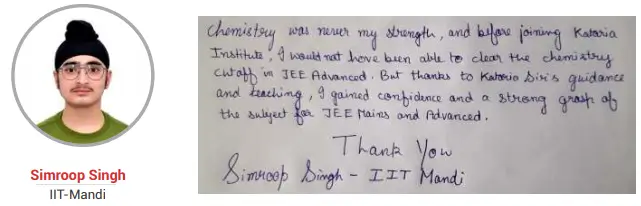 Simroop Singh
IIT-Mandi
Chemistry was never my strength, and before joining Kataria
Institute, I would not have been able to clear the chemistry
cutoff in JEE Advanced. But thanks to Kataria Sir's guidance
and teaching, I gained confidence and a strong grasp of
the subject for JEE Mains and Advanced.
Thank You
Simroop Singh - IIT Mandi